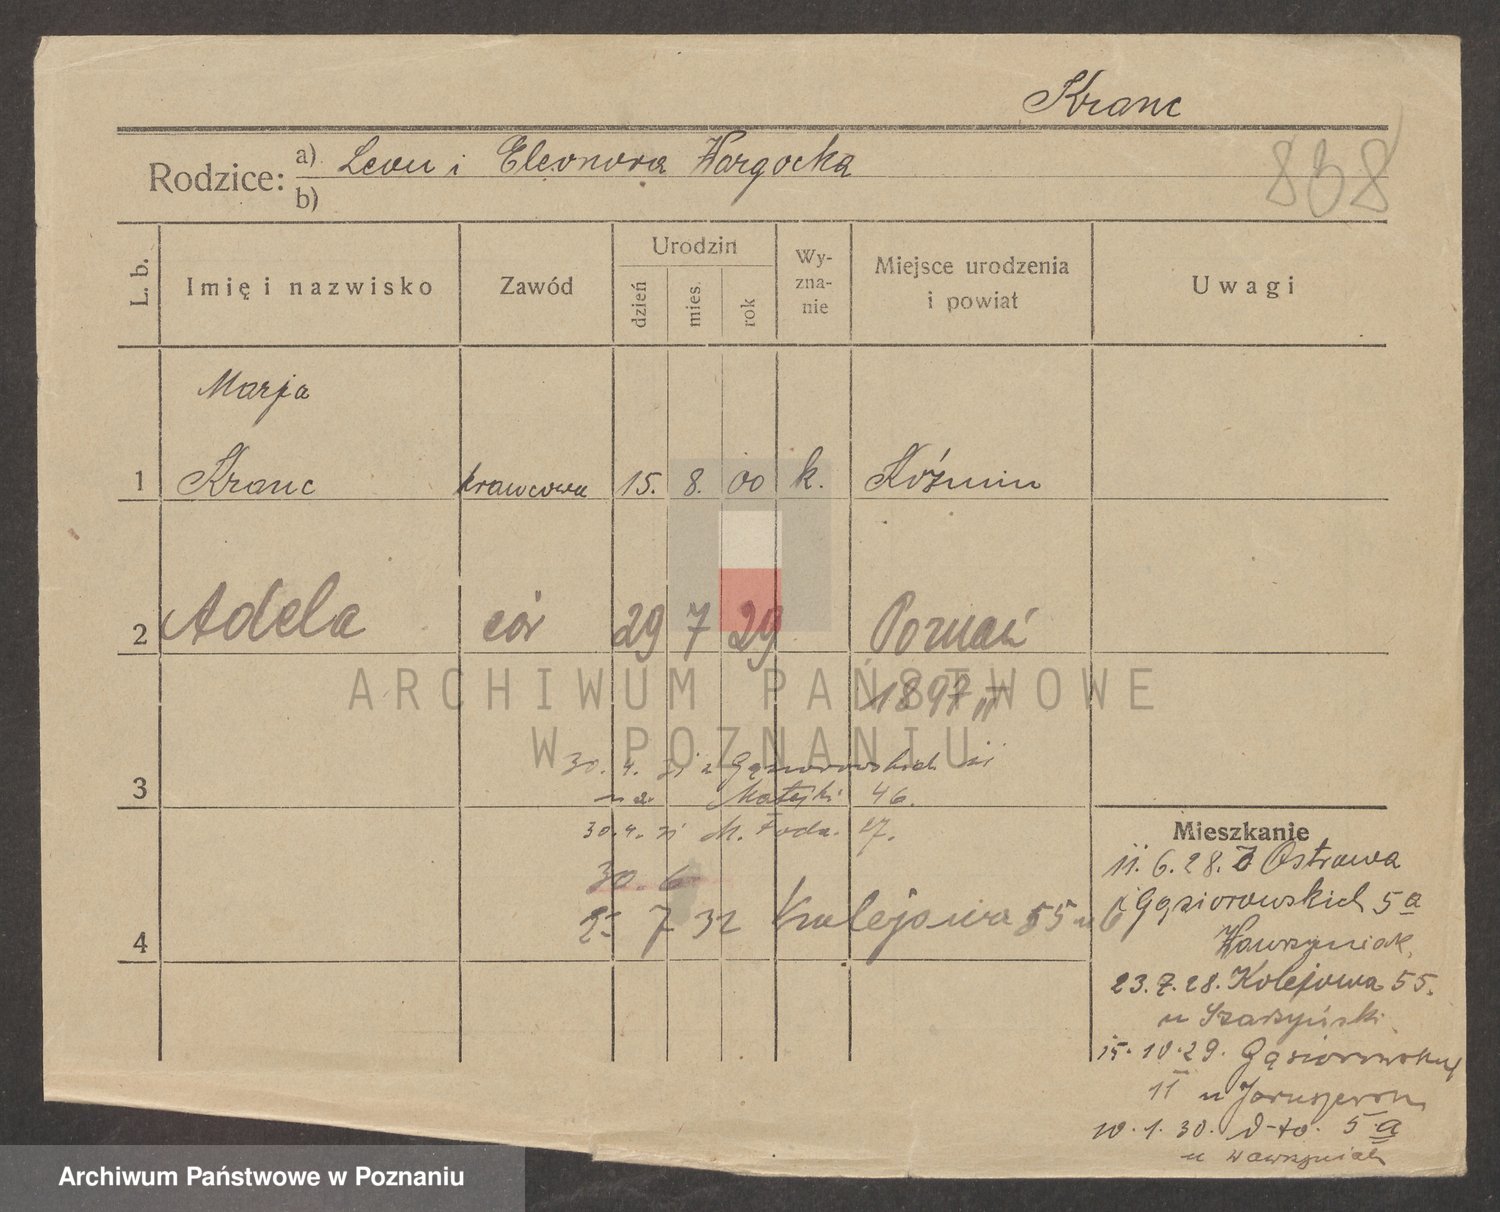 Kranc
Rodzice: a) Leon i Eleonora Wargocka
b)
838
L. b.
Imię i nazwisko
Zawód
Urodzin
dzień
mies.
rok
Wy-
zna-
nie
Miejsce urodzenia
i powiat
Uwagi
Marja
1 Kranc krawcowa 15. 8. 00 k. Koźmin
2 Adela cór 29 7 29 Poznań
1897
ARCHIWUM PAŃSTWOWE
W POZNANIU
30. 4. 31 z Gąsiorowskich
3 na Matejki 46.
30. 4. 31 M. Focha
30. 6
7 32 Kolejowa 55
4
Mieszkanie
11. 6. 28. Z Ostrowa
Gąsiorowskich 5a
Wawrzyniak
23. 7. 28. Kolejowa 55.
u Szarzyński
15. 10. 29. Gąsiorowskich
11 u
10. 1. 30. d-to. 5a
u Wawrzyniak
Archiwum Państwowe w Poznaniu